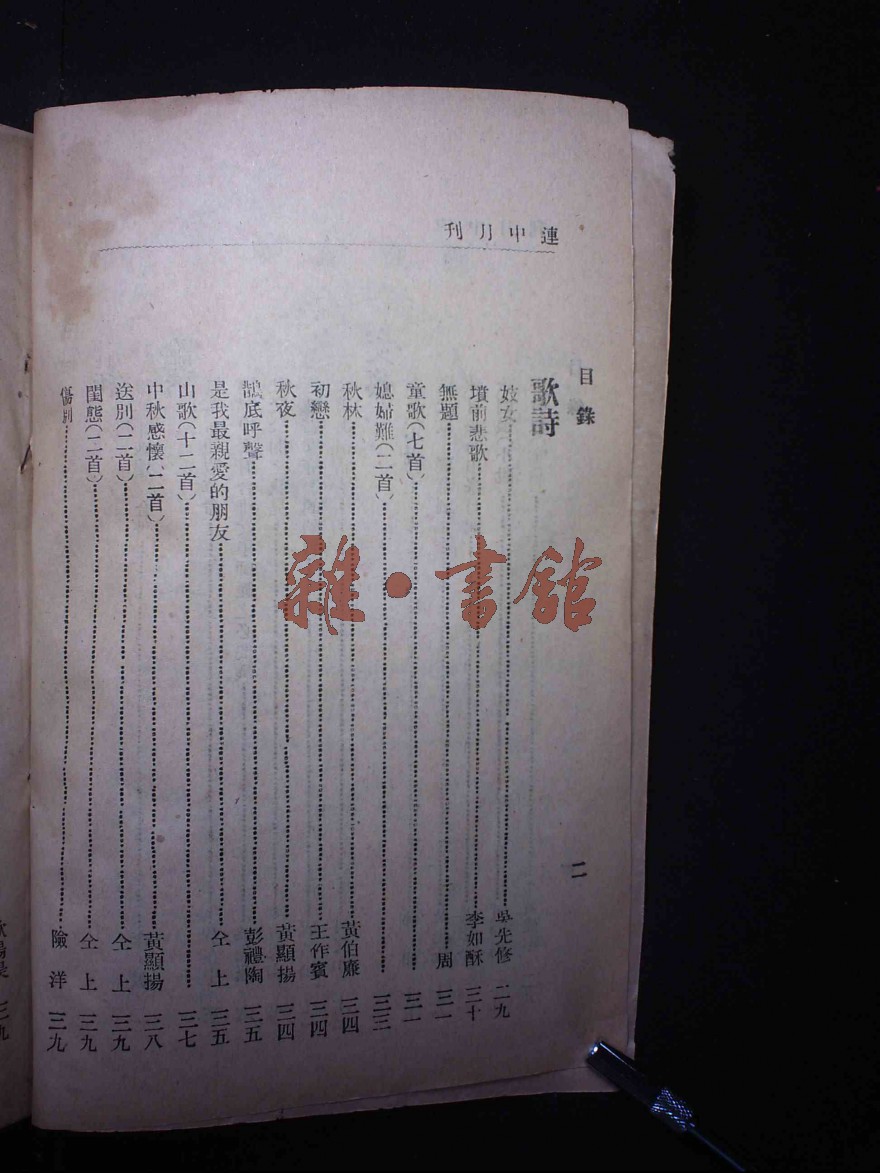 連中月刊
目錄
二
歌詩
妓女 吳先修 二九
墳前悲歌 李如酥 三十
無題 周 三一
童歌(七首) 三一
媳婦難(二首) 三三
秋林 黃伯廉 三四
初戀 王作賓 三四
秋夜 黃顯揚 三四
底呼聲 彭禮陶 三五
是我最親愛的朋友 仝上 三五
山歌(十二首) 三七
中秋感懷(二首) 黃顯揚 三八
送別(二首) 仝上 三九
閨態(二首) 仝上 三九
傷別 險洋 三九
雜·書館